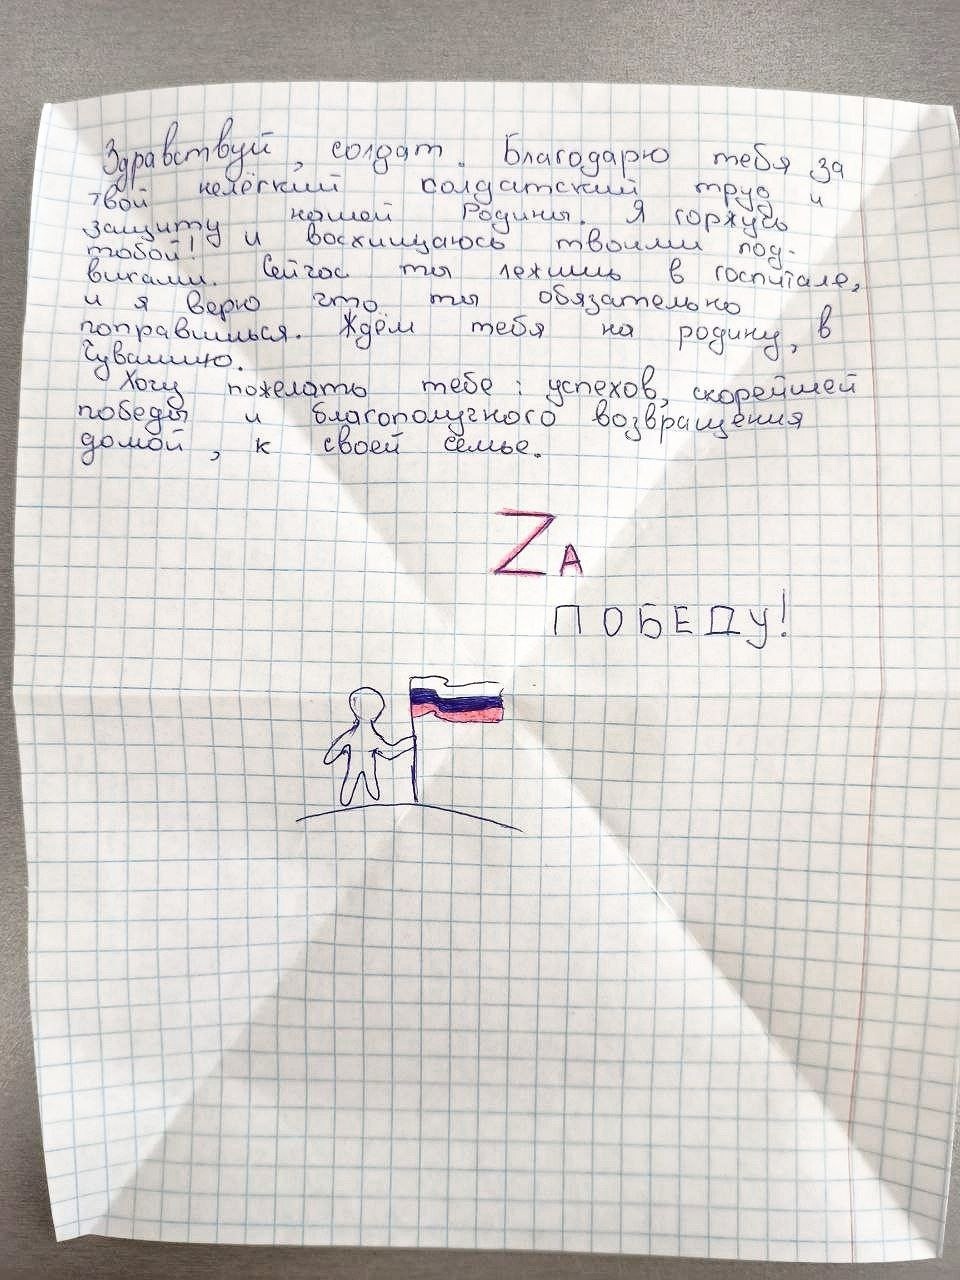 Здравствуй, солдат. Благодарю тебя за
твой нелёгкий солдатский труд и
защиту нашей Родины. Я горжусь
тобой! и восхищаюсь твоими под-
вигами. Сейчас ты лежишь в госпитале,
и я верю что ты обязательно
поправишься. Ждём тебя на родину, в
Чувашию.
Хочу пожелать тебе: успехов, скорейшей
победы и благополучного возвращения
домой, к своей семье.
Zа
ПОБЕДУ!